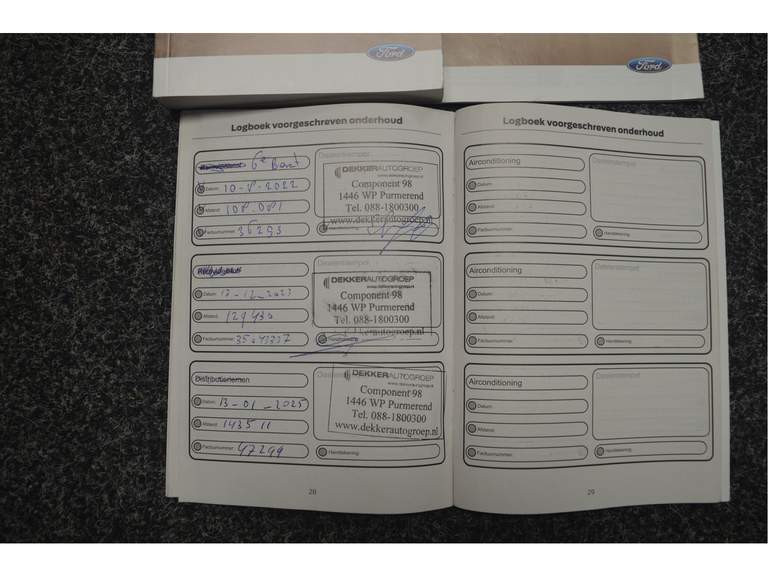 Ford
Ford
Logboek voorgeschreven onderhoud
6e beurt
Datum: 10-8-2022
Afstand: 108.081
Factuurnummer: 36293
Dealerstempel
DEKKERAUTOGROEP
www.dekkerautogroep.nl
Component 98
1446 WP Purmerend
Tel. 088-1800300
www.dekkerautogroep.nl
Datum:
Afstand: 129430
Factuurnummer:
Dealerstempel
DEKKERAUTOGROEP
www.dekkerautogroep.nl
Component 98
1446 WP Purmerend
Tel. 088-1800300
kkerautogroep.nl
Distributieriemen
Datum: 13-01-2025
Afstand: 143511
Factuurnummer: 47299
DEKKERAUTOGROEP
www.dekkerautogroep.nl
Component 98
1446 WP Purmerend
Tel. 088-1800300
www.dekkerautogroep.nl
Handtekening:
28
Logboek voorgeschreven onderhoud
Airconditioning
Datum:
Afstand:
Factuurnummer:
Dealerstempel
Handtekening:
Airconditioning
Datum:
Afstand:
Factuurnummer:
Dealerstempel
Handtekening:
Airconditioning
Datum:
Afstand:
Factuurnummer:
Dealerstempel
Handtekening:
29